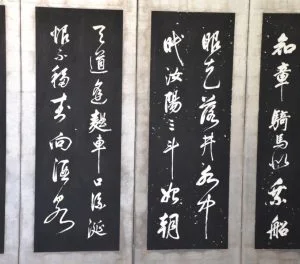 知章騎馬似乘船
眼花落井水
眠汝陽三斗始朝
天道逢麴車口流涎
恨不移封向酒泉